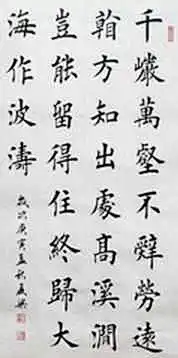 千巖萬壑不辭勞遠
看方知出處高溪澗
豈能留得住終歸大
海作波濤
歲次庚寅孟秋